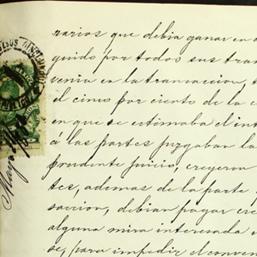 rarios que debia ganar en d
guido por todos sus tra
venia en la transaccion, t
il cinco por ciento de la c
en que se estimaba el int
á las partes juzgaban la
prudente juicio, creyeron
tes, ademas de la parte
saccion, debian pagar cre
alguna mira interesada
se, para impedir el conven
Mayo